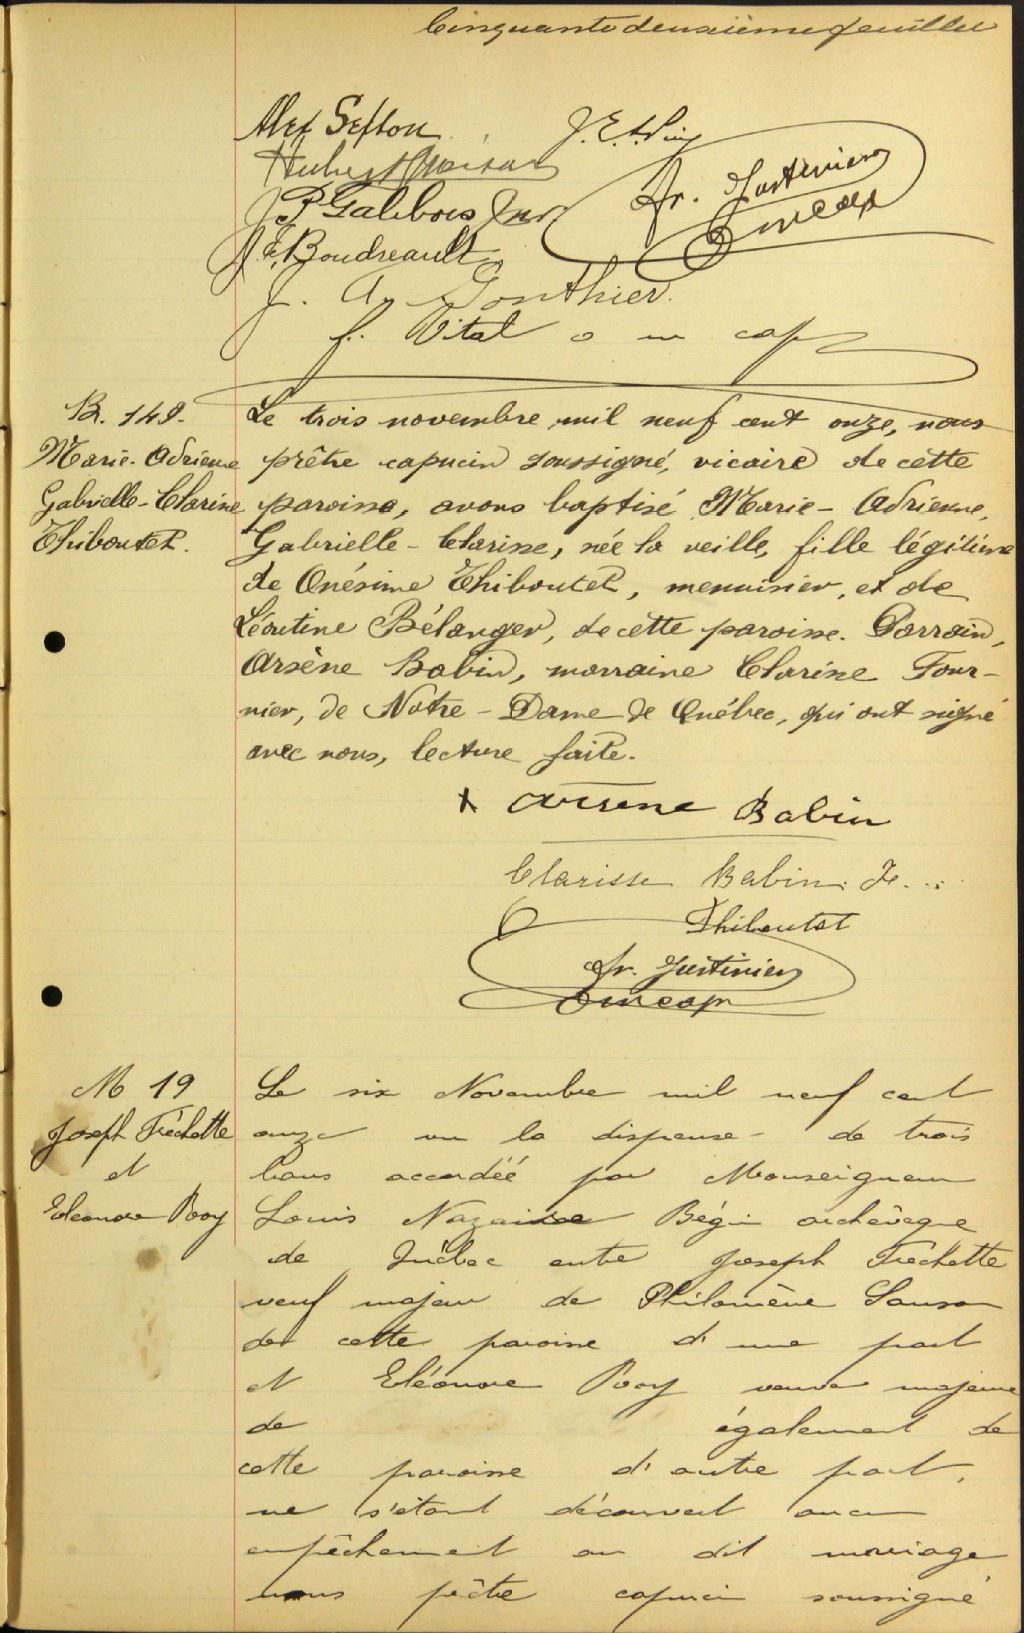 Cinquante deuxième feuillet
Alex Sefton
J. E. A. Pin
Hubert
Fr. Justinien
J P Galibois Jnr
o m cap
J. E. Boudreault
J. A. Gonthier.
f. Vital o m cap
B. 149.
Marie-Adrienne
Gabrielle-Clarine
Thiboutot.
Le trois novembre mil neuf cent onze, nous
prêtre capucin soussigné, vicaire de cette
paroisse, avons baptisé Marie-Adrienne,
Gabrielle-Clarisse, née la veille, fille légitime
de Onésime Thiboutot, menuisier, et de
Léontine Bélanger, de cette paroisse. Parrain,
Arsène Babin, marraine Clarisse Four-
nier, de Notre-Dame de Québec, qui ont signé
avec nous, lecture faite.
x Arsene Babin
Clarisse Babin
Thiboutot
fr. Justinien
o m cap
M 19
Joseph Fréchette
et
Eleonore Booy
Le six Novembre mil neuf cent
onze vu la dispense de trois
bans accordéé par Monseigneur
Louis Nazaire Bégin archevêque
de Québec entre Joseph Fréchette
veuf majeur de Philomène Samson
de cette paroisse d'une part
et Eléonore Booy veuve majeure
de également de
cette paroisse d'autre part,
ne s'étant découvert aucun
empêchement au dit mariage
nous prêtre capucin soussigné